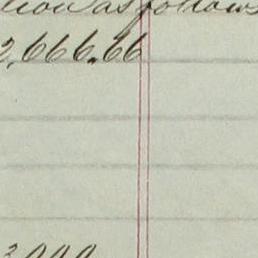 as follows
2,666.66
3,000